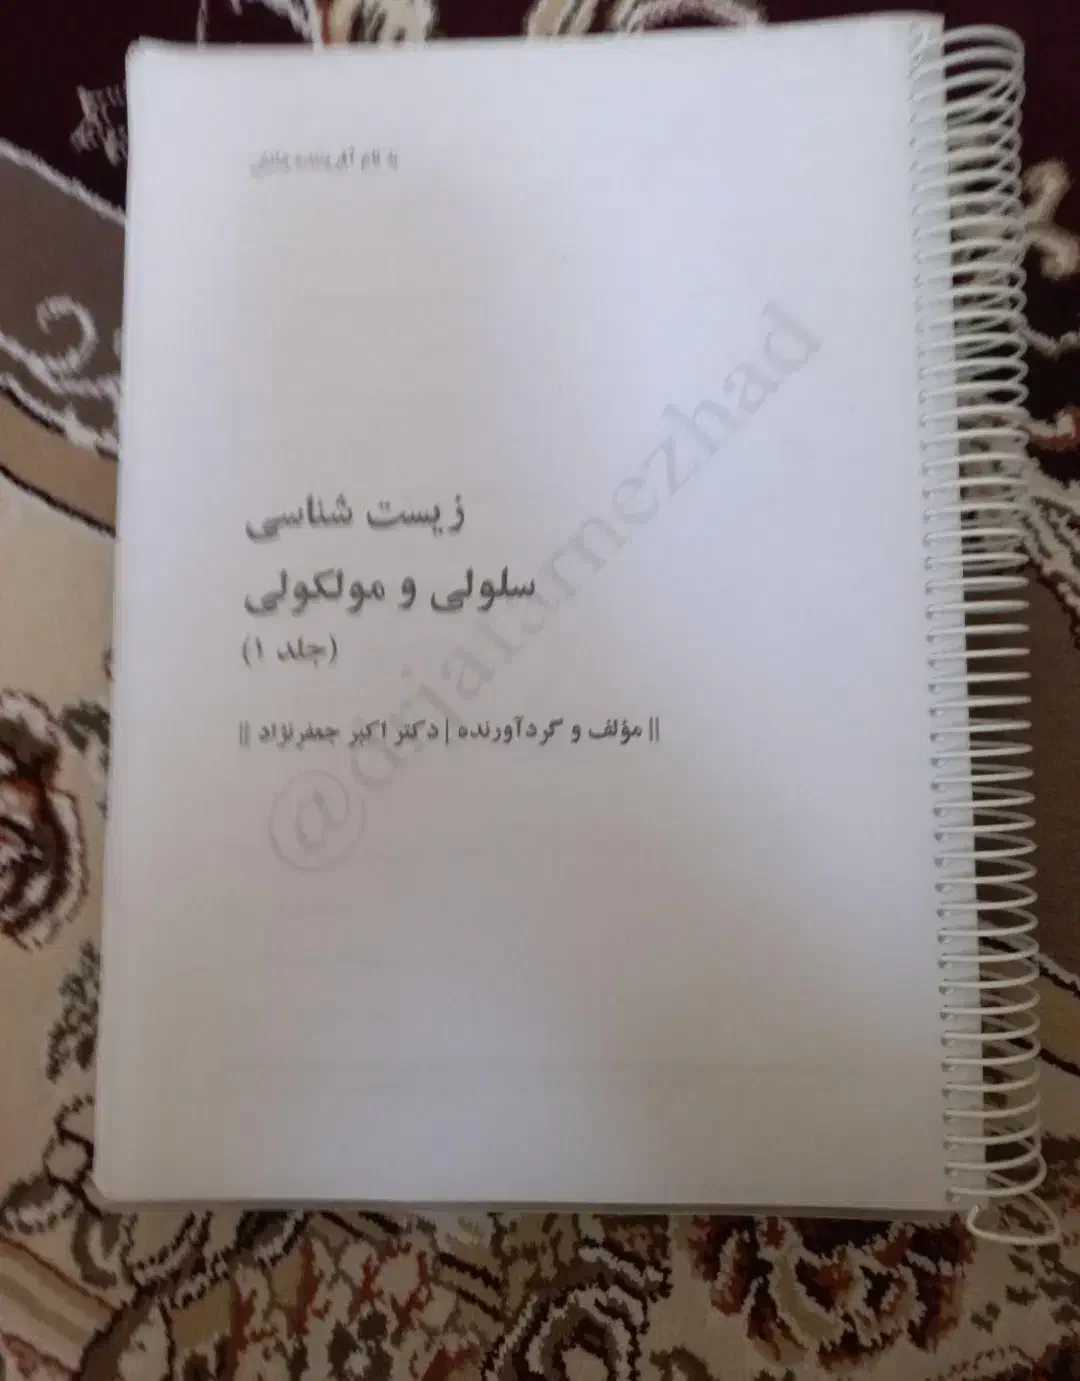 به نام آفریننده دانش
زیست شناسی
سلولی و مولکولی
(جلد ۱)
|| مؤلف و گردآورنده | دکتر اکبر جعفرنژاد ||
@drjafarnezhad